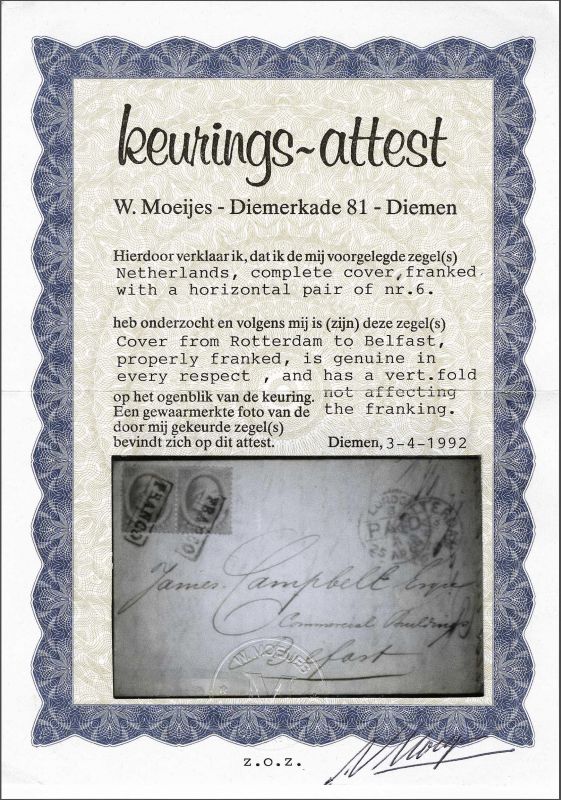 keurings~attest
W. Moeijes - Diemerkade 81 - Diemen
Hierdoor verklaar ik, dat ik de mij voorgelegde zegel(s)
Netherlands, complete cover,franked
with a horizontal pair of nr.6.
heb onderzocht en volgens mij is (zijn) deze zegel(s)
Cover from Rotterdam to Belfast,
properly franked, is genuine in
every respect , and has a vert.fold
not affecting
the franking.
op het ogenblik van de keuring.
Een gewaarmerkte foto van de
door mij gekeurde zegel(s)
bevindt zich op dit attest.
Diemen, 3-4-1992
FRANCO
FRANCO
PAID
James Campbell Esqre
Commercial Buildings
Belfast
W. MOEIJES
z.o.z.